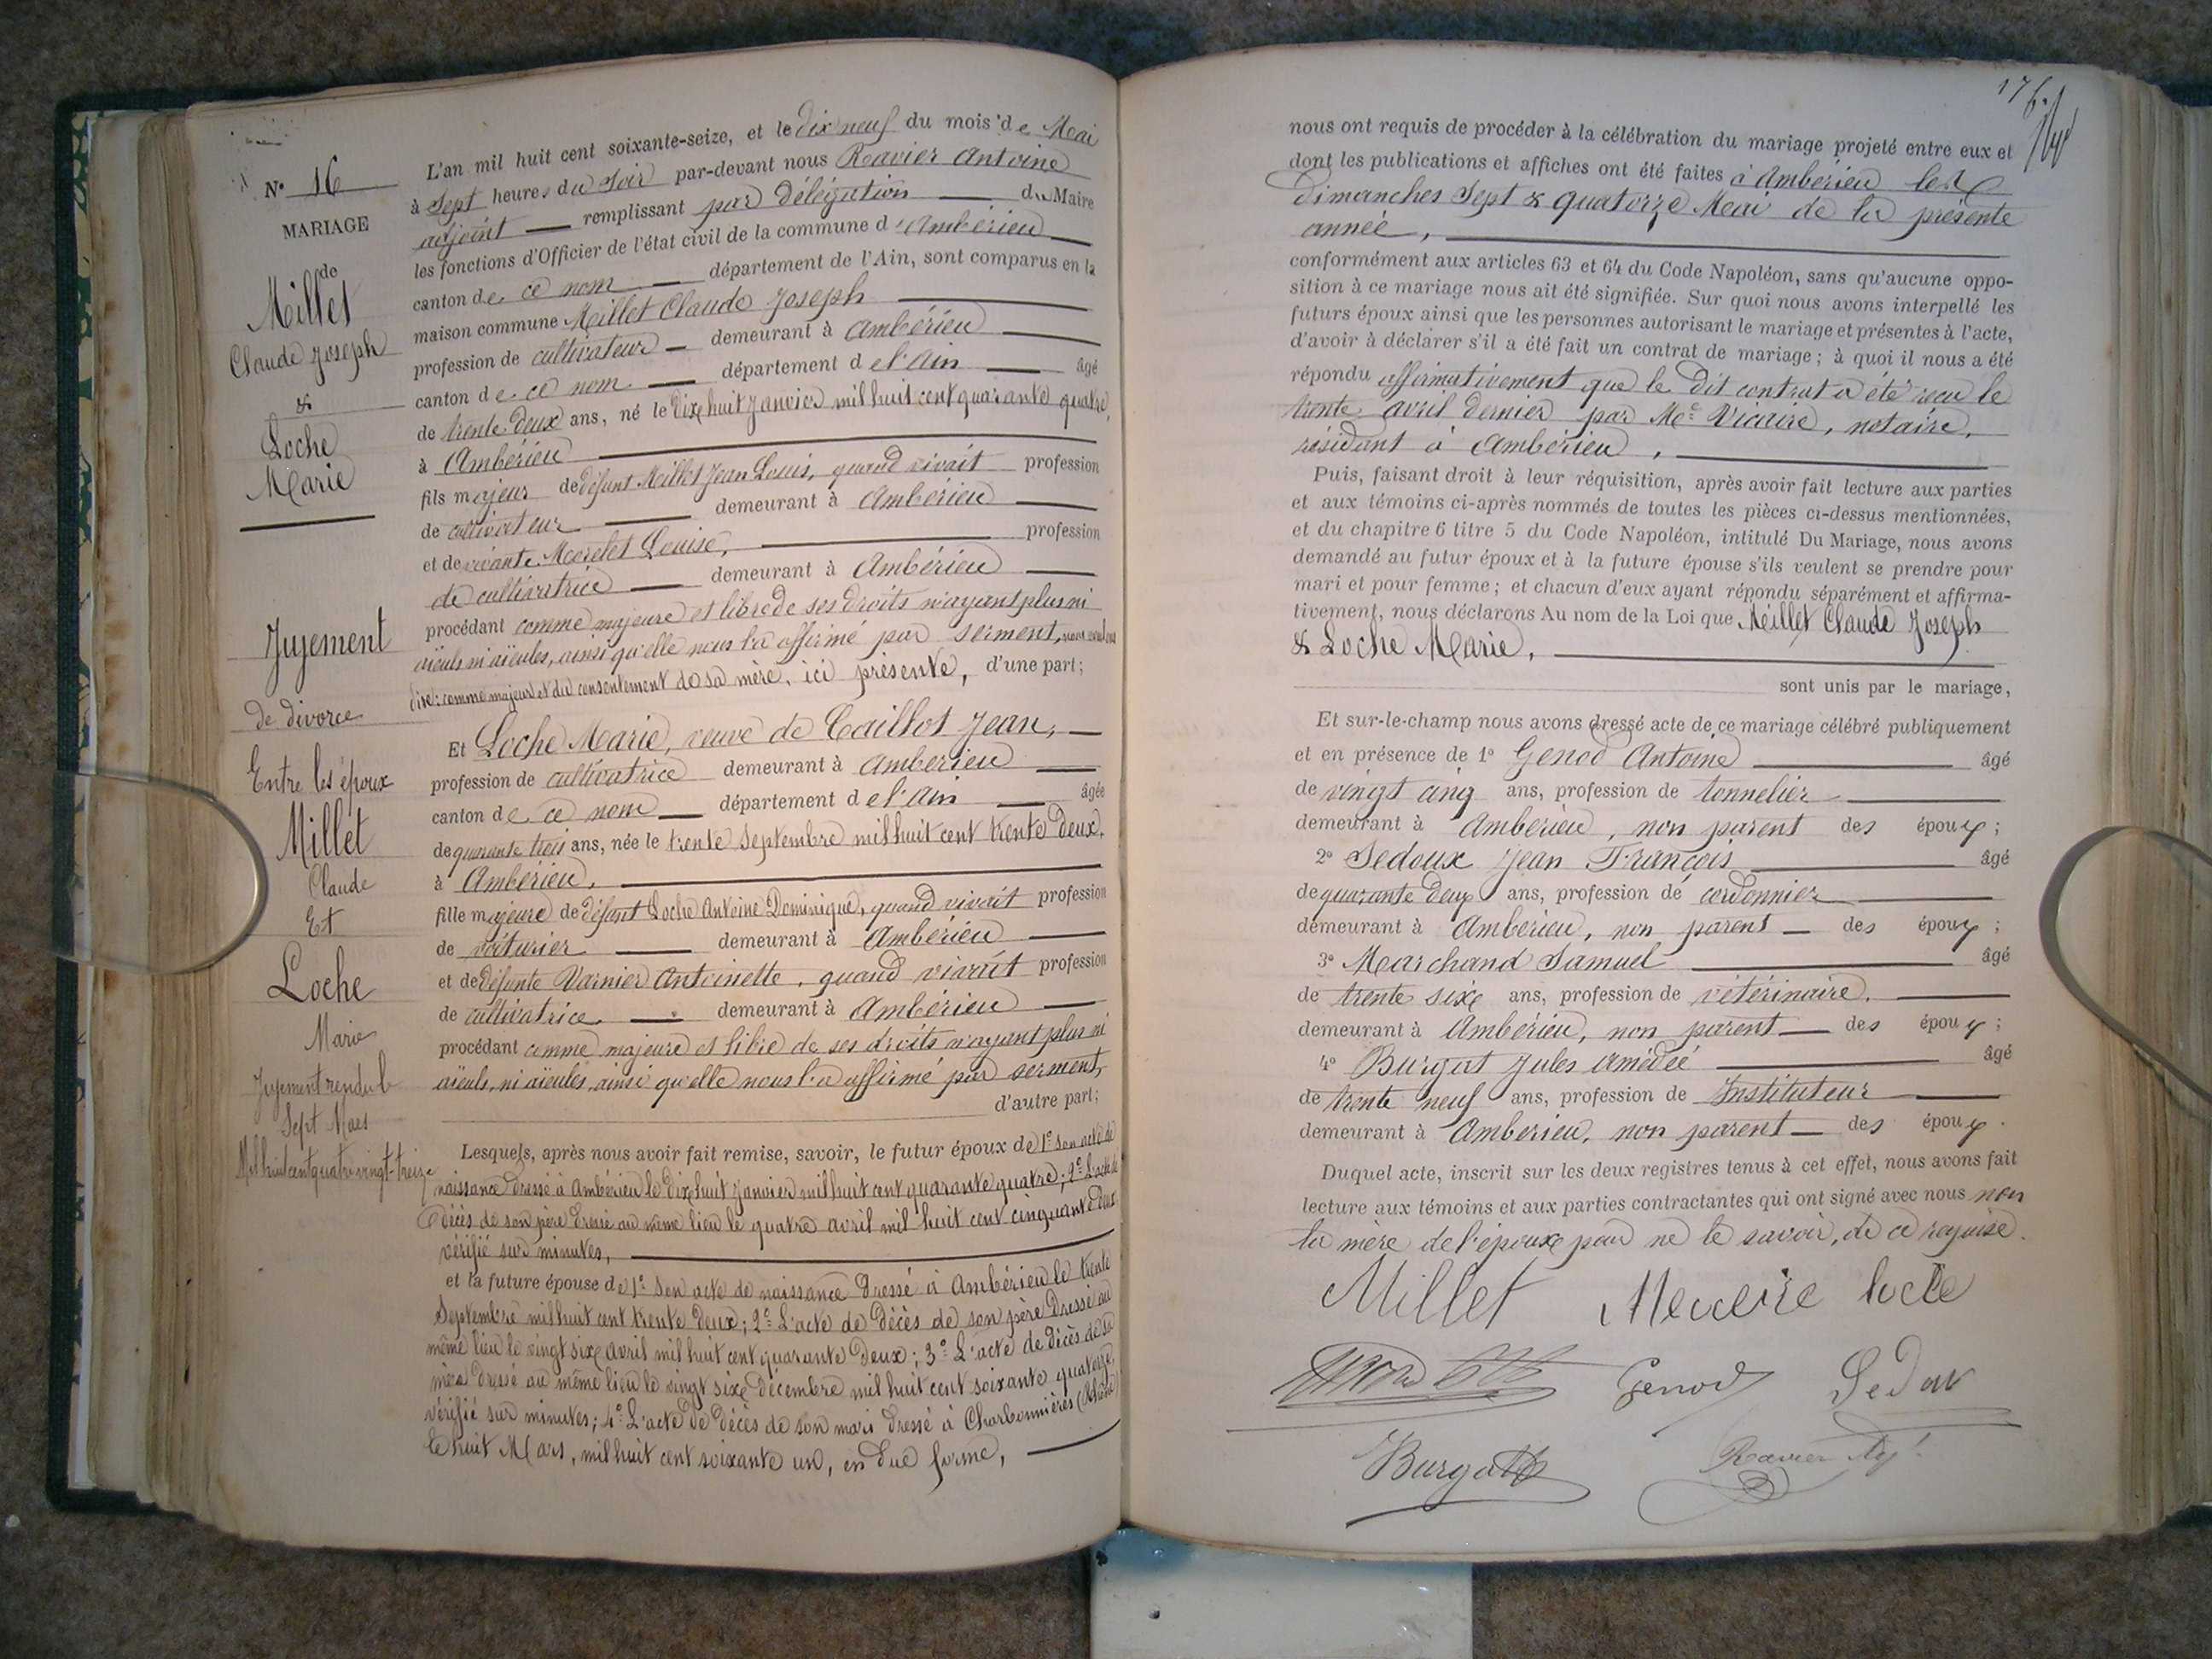 N° 16
MARIAGE
de
Millet
Claude Joseph
&
Loche
Marie
Jugement
de divorce
Entre les époux
Millet
Claude
Et
Loche
Marie
Jugement rendu le
Sept Mars
Mil huit cent quatre vingt-treize
L'an mil huit cent soixante-seize, et le dix neuf du mois de Mai
à Sept heures du Soir par-devant nous Ravier Antoine
adjoint remplissant par délégation du Maire
les fonctions d'Officier de l'état civil de la commune d'Ambérieu
canton de ce nom département de l'Ain, sont comparus en la
maison commune Millet Claude Joseph
profession de cultivateur demeurant à Ambérieu
canton de ce nom département de l'Ain âgé
de trente deux ans, né le dixhuit Janvier mil huit cent quarante quatre,
à Ambérieu
fils majeur de défunt Millet Jean Louis, quand vivait profession
de cultivateur demeurant à Ambérieu
et de vivante Morelet Louise, profession
de cultivatrice demeurant à Ambérieu
procédant comme majeure et libre de ses droits n'ayant plus ni
aïeuls ni aïeules, ainsi qu'elle nous l'a affirmé par serment,
dire: comme majeur et du consentement de sa mère, ici présente, d'une part;
Et Loche Marie, veuve de Caillot Jean,
profession de cultivatrice demeurant à Ambérieu
canton de ce nom département de l'Ain âgée
de quarante trois ans, née le trente Septembre mil huit cent trente deux,
à Ambérieu,
fille majeure de défunt Loche Antoine Dominique, quand vivait profession
de voiturier demeurant à Ambérieu
et de défunte Varnier Antoinette, quand vivait profession
de cultivatrice demeurant à Ambérieu
procédant comme majeure et libre de ses droits n'ayant plus ni
aïeuls, ni aïeules, ainsi qu'elle nous l'a affirmé par serment,
d'autre part;
Lesquels, après nous avoir fait remise, savoir, le futur époux de 1° son acte de
naissance dressé à Ambérieu le dixhuit Janvier mil huit cent quarante quatre; 2° L'acte de
décès de son père dressé au même lieu le quatre avril mil huit cent cinquante deux
vérifié sur minutes,
et la future épouse de 1° son acte de naissance dressé à Ambérieu le trente
Septembre mil huit cent trente deux; 2° L'acte de décès de son père dressé au
même lieu le vingt sixe avril mil huit cent quarante deux; 3° L'acte de décès de sa
mère dressé au même lieu le vingt sixe décembre mil huit cent soixante quatorze,
vérifié sur minutes; 4° L'acte de décès de son mari dressé à Charbonnières (Rhône)
le huit Mars, mil huit cent soixante un, en due forme,
nous ont requis de procéder à la célébration du mariage projeté entre eux et
dont les publications et affiches ont été faites à Ambérieu les
Dimanches Sept & quatorze Mai de la présente
année,
conformément aux articles 63 et 64 du Code Napoléon, sans qu'aucune oppo-
sition à ce mariage nous ait été signifiée. Sur quoi nous avons interpellé les
futurs époux ainsi que les personnes autorisant le mariage et présentes à l'acte,
d'avoir à déclarer s'il a été fait un contrat de mariage; à quoi il nous a été
répondu affirmativement que le dit contrat a été reçu le
trente avril dernier par Me Vicaire, notaire,
résidant à Ambérieu,
Puis, faisant droit à leur réquisition, après avoir fait lecture aux parties
et aux témoins ci-après nommés de toutes les pièces ci-dessus mentionnées,
et du chapitre 6 titre 5 du Code Napoléon, intitulé Du Mariage, nous avons
demandé au futur époux et à la future épouse s'ils veulent se prendre pour
mari et pour femme; et chacun d'eux ayant répondu séparément et affirma-
tivement, nous déclarons Au nom de la Loi que Millet Claude Joseph
& Loche Marie,
sont unis par le mariage,
Et sur-le-champ nous avons dressé acte de ce mariage célébré publiquement
et en présence de 1° Genod Antoine âgé
de vingt cinq ans, profession de tonnelier
demeurant à Ambérieu, non parent des époux;
2° Sedoux Jean François âgé
de quarante deux ans, profession de cordonnier
demeurant à Ambérieu, non parent des époux;
3° Marchand Samuel âgé
de trente sixe ans, profession de vétérinaire,
demeurant à Ambérieu, non parent des époux;
4° Burgat Jules Amédée âgé
de trente neuf ans, profession de Instituteur
demeurant à Ambérieu, non parent des époux.
Duquel acte, inscrit sur les deux registres tenus à cet effet, nous avons fait
lecture aux témoins et aux parties contractantes qui ont signé avec nous non
la mère de l'épouxe pour ne le savoir, de ce requise.
Millet
Genod
Burgat
Ravier Adj.